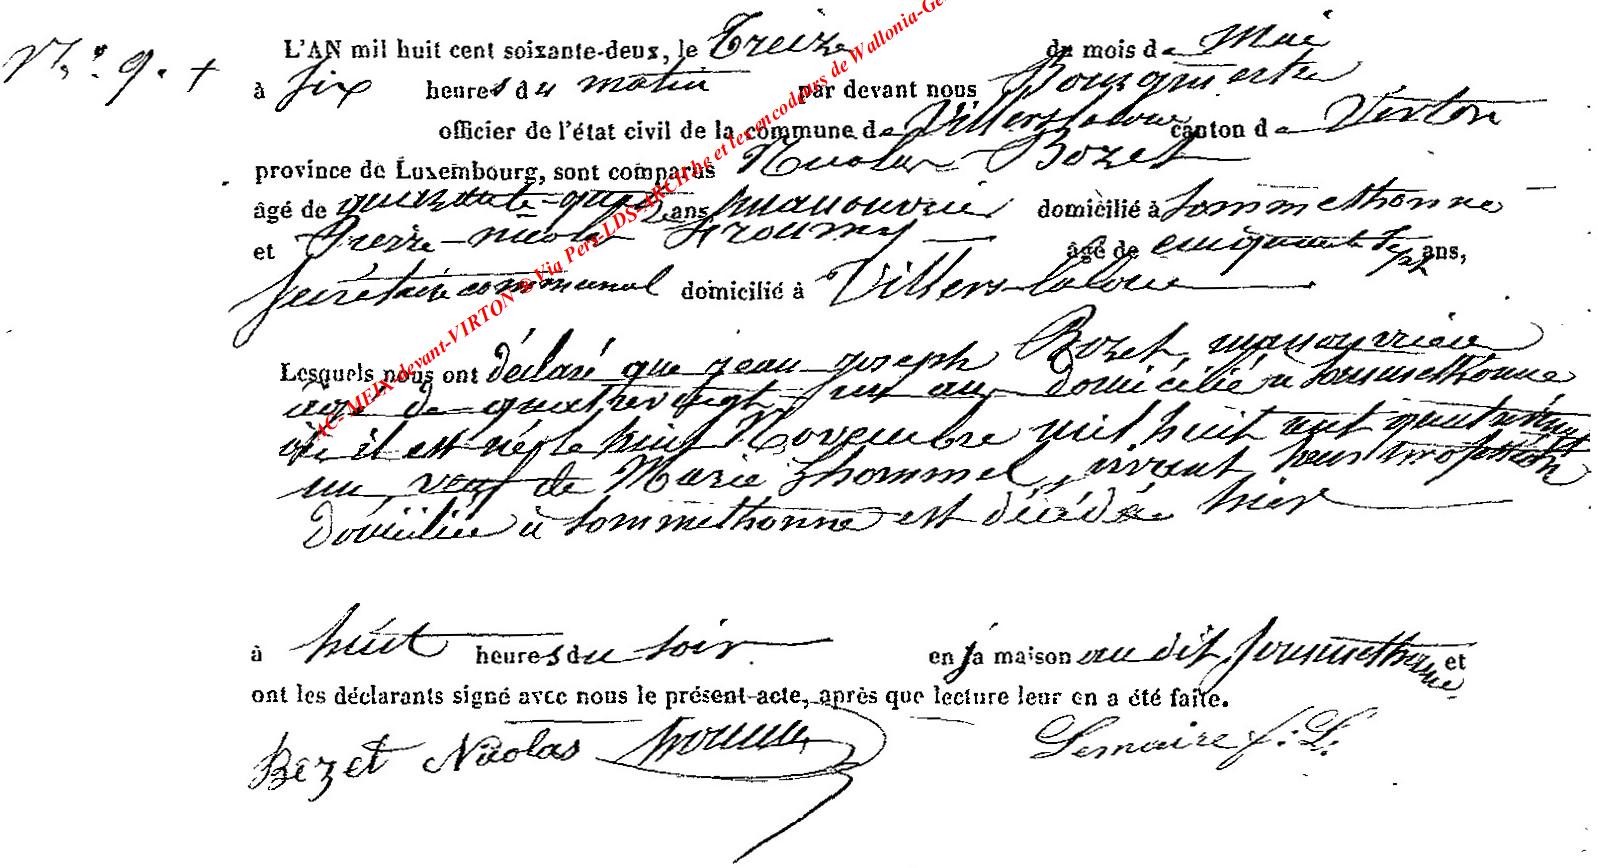 N.º 9. +
L'AN mil huit cent soixante-deux, le Treize du mois de Mai
à six heures du matin par devant nous Bourgmestre
officier de l'état civil de la commune de Villers-laloue canton de Virton
province de Luxembourg, sont comparus Nicolas Bozet
âgé de quarante-quatre ans manouvrier domicilié à Sommethonne
et Pierre-nicolas âgé de cinquante sept ans,
secrétaire communal domicilié à Villers-laloue
Lesquels nous ont déclaré que jean joseph Bozet, manouvrier
âgé de quatrevingt ans domicilié à Sommethonne
où il est né le huit Novembre mil huit cent
un, veuf de Marie Lhommel, vivant sans profession
domiciliée à Sommethonne est décédé hier
à huit heures du soir en sa maison au dit Sommethonne et
ont les déclarants signé avec nous le présent acte, après que lecture leur en a été faite.
Bezet Nicolas Lemaire f. L.
AC-MEIX-devant-VIRTON @ Via Pers-LDS-ARCH be et les encodeurs de Wallonia-Ge